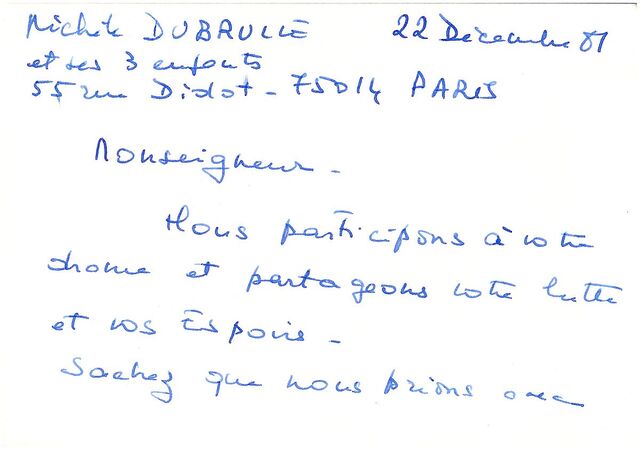 Michèle DUBRULLE 22 Décembre 81
et ses 3 enfants
55 rue Didot - 75014 PARIS
Monseigneur -
Nous participons à votre
drame et partageons votre lutte
et vos Espoirs -
Sachez que nous prions avec